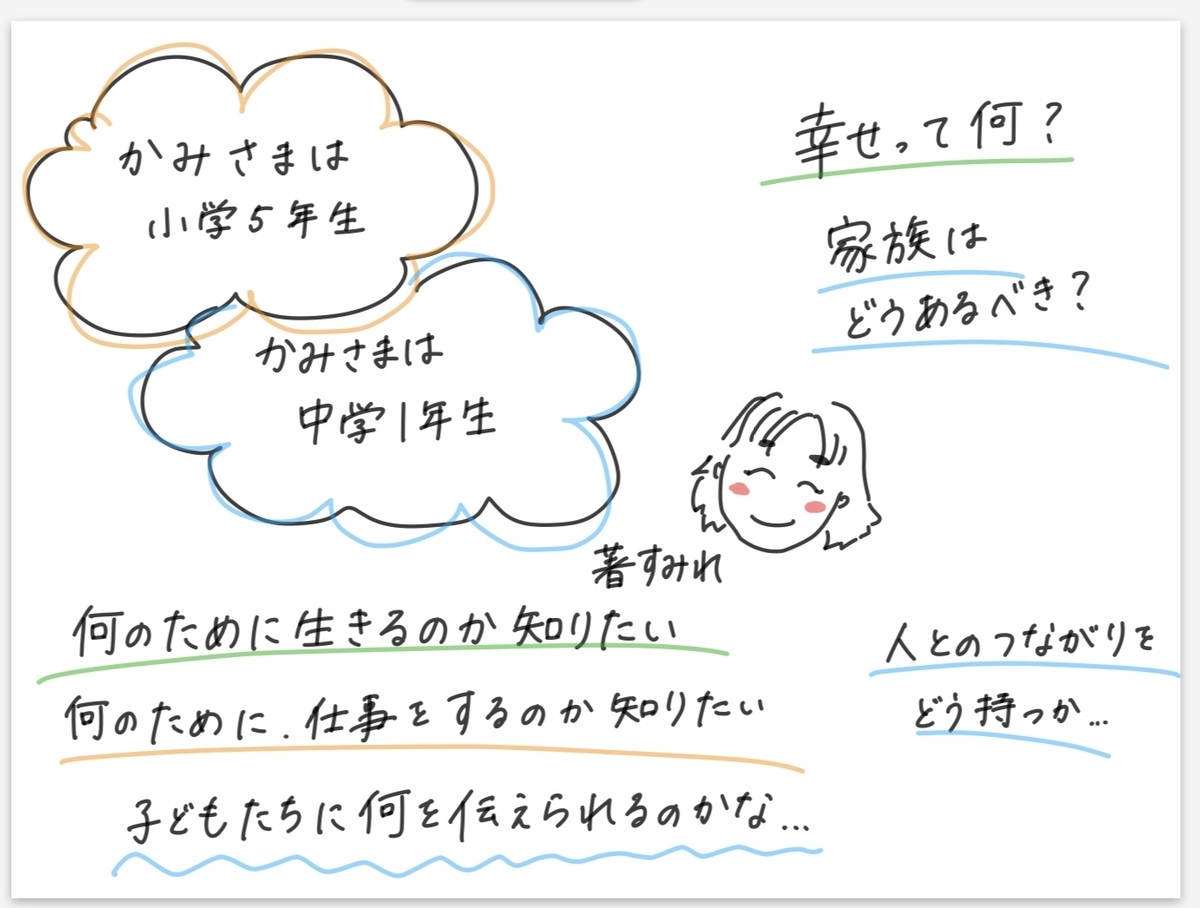 かみさまは
小学5年生
かみさまは
中学1年生
著すみれ
幸せって何?
家族は
どうあるべき?
何のために生きるのか知りたい
何のために.仕事をするのか知りたい
子どもたちに何を伝えられるのかな...
人とのつながりを
どう持つか...